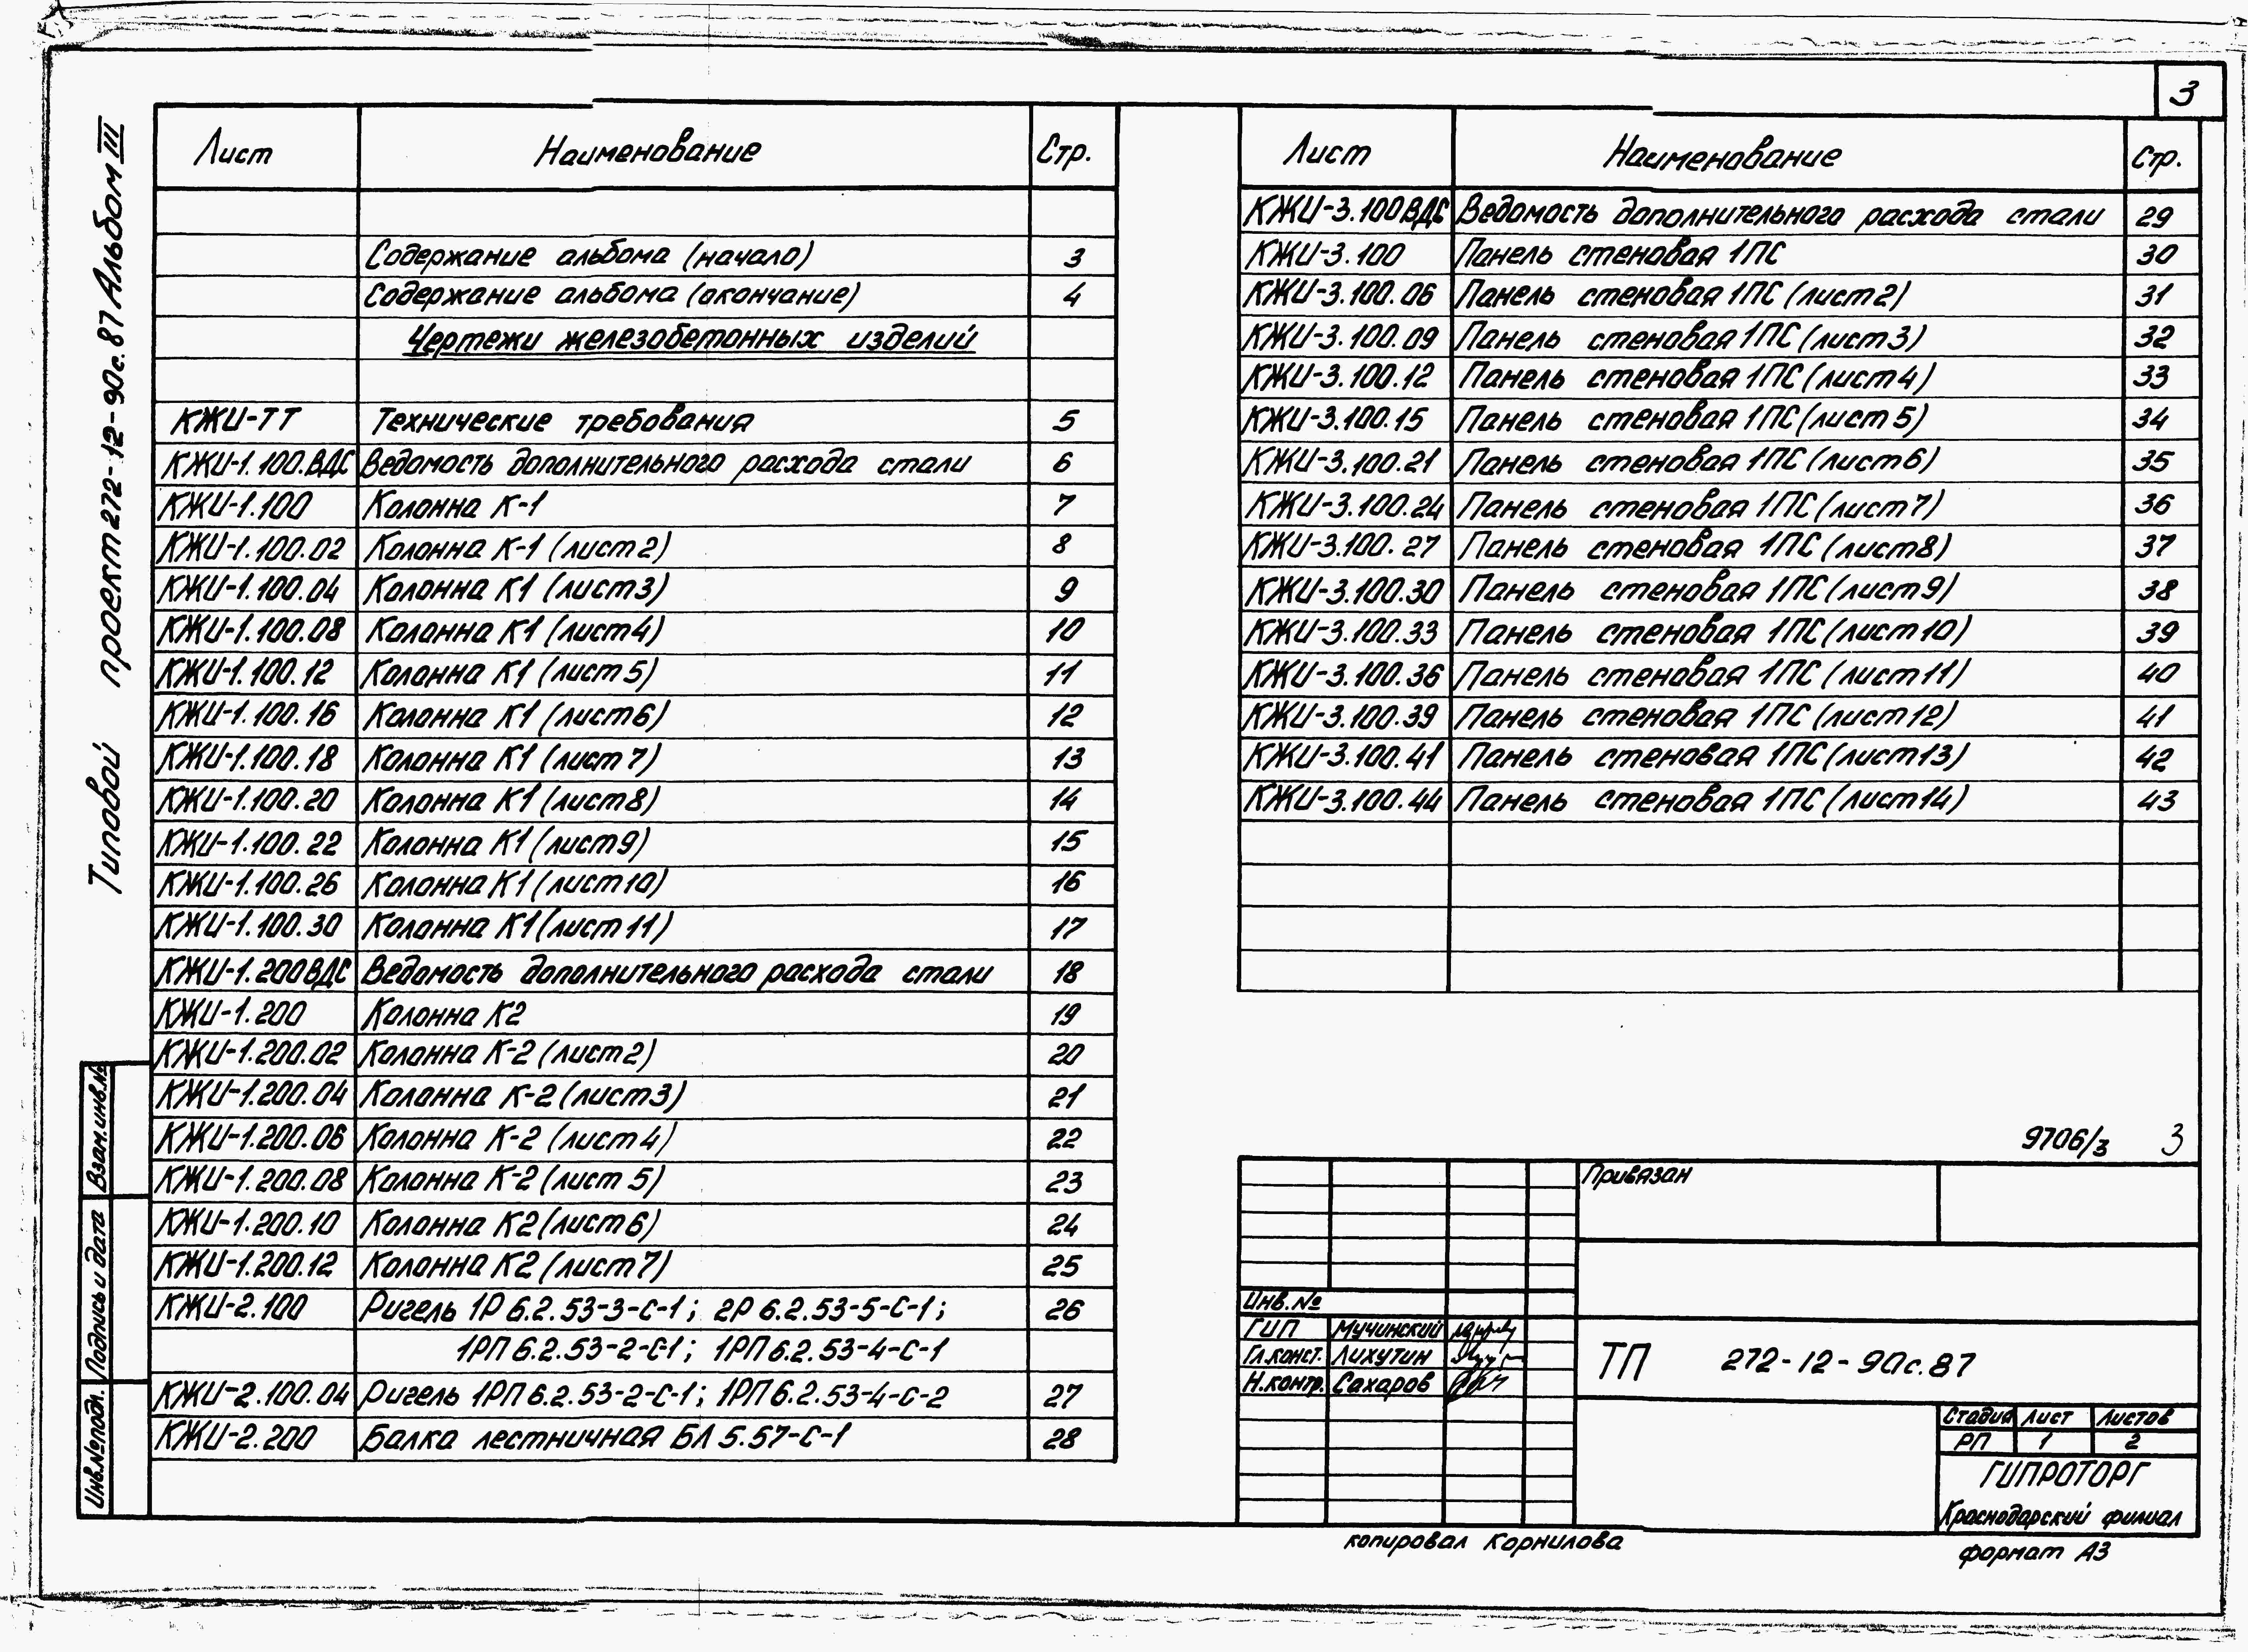 3
Типовой проект 272-12-90с.87 Альбом III
Лист Наименование Стр.
Содержание альбома (начало) 3
Содержание альбома (окончание) 4
Чертежи железобетонных изделий
КЖИ-ТТ Технические требования 5
КЖИ-1.100.ВДС Ведомость дополнительного расхода стали 6
КЖИ-1.100 Колонна К-1 7
КЖИ-1.100.02 Колонна К-1 (лист 2) 8
КЖИ-1.100.04 Колонна К1 (лист 3) 9
КЖИ-1.100.08 Колонна К1 (лист 4) 10
КЖИ-1.100.12 Колонна К1 (лист 5) 11
КЖИ-1.100.16 Колонна К1 (лист 6) 12
КЖИ-1.100.18 Колонна К1 (лист 7) 13
КЖИ-1.100.20 Колонна К1 (лист 8) 14
КЖИ-1.100.22 Колонна К1 (лист 9) 15
КЖИ-1.100.26 Колонна К1 (лист 10) 16
КЖИ-1.100.30 Колонна К1 (лист 11) 17
КЖИ-1.200ВДС Ведомость дополнительного расхода стали 18
КЖИ-1.200 Колонна К2 19
КЖИ-1.200.02 Колонна К-2 (лист 2) 20
КЖИ-1.200.04 Колонна К-2 (лист 3) 21
КЖИ-1.200.06 Колонна К-2 (лист 4) 22
КЖИ-1.200.08 Колонна К-2 (лист 5) 23
КЖИ-1.200.10 Колонна К2 (лист 6) 24
КЖИ-1.200.12 Колонна К2 (лист 7) 25
КЖИ-2.100 Ригель 1Р 6.2.53-3-С-1; 2Р 6.2.53-5-С-1; 26
1РП 6.2.53-2-С-1; 1РП 6.2.53-4-С-1
КЖИ-2.100.04 Ригель 1РП 6.2.53-2-С-1; 1РП 6.2.53-4-С-2 27
КЖИ-2.200 Балка лестничная БЛ 5.57-С-1 28
Лист Наименование Стр.
КЖИ-3.100ВДС Ведомость дополнительного расхода стали 29
КЖИ-3.100 Панель стеновая 1ПС 30
КЖИ-3.100.06 Панель стеновая 1ПС (лист 2) 31
КЖИ-3.100.09 Панель стеновая 1ПС (лист 3) 32
КЖИ-3.100.12 Панель стеновая 1ПС (лист 4) 33
КЖИ-3.100.15 Панель стеновая 1ПС (лист 5) 34
КЖИ-3.100.21 Панель стеновая 1ПС (лист 6) 35
КЖИ-3.100.24 Панель стеновая 1ПС (лист 7) 36
КЖИ-3.100.27 Панель стеновая 1ПС (лист 8) 37
КЖИ-3.100.30 Панель стеновая 1ПС (лист 9) 38
КЖИ-3.100.33 Панель стеновая 1ПС (лист 10) 39
КЖИ-3.100.36 Панель стеновая 1ПС (лист 11) 40
КЖИ-3.100.39 Панель стеновая 1ПС (лист 12) 41
КЖИ-3.100.41 Панель стеновая 1ПС (лист 13) 42
КЖИ-3.100.44 Панель стеновая 1ПС (лист 14) 43
9706/3 3
Взам.инв.№
Подпись и дата
Инв.№ подл.
Привязан
Инв.№
ГИП Мучинский
Гл.конст. Лихутин
Н.контр. Сахаров
ТП 272-12-90с.87
Стадия Лист Листов
РП 1 2
ГИПРОТОРГ
Краснодарский филиал
копировал Корнилова
формат А3